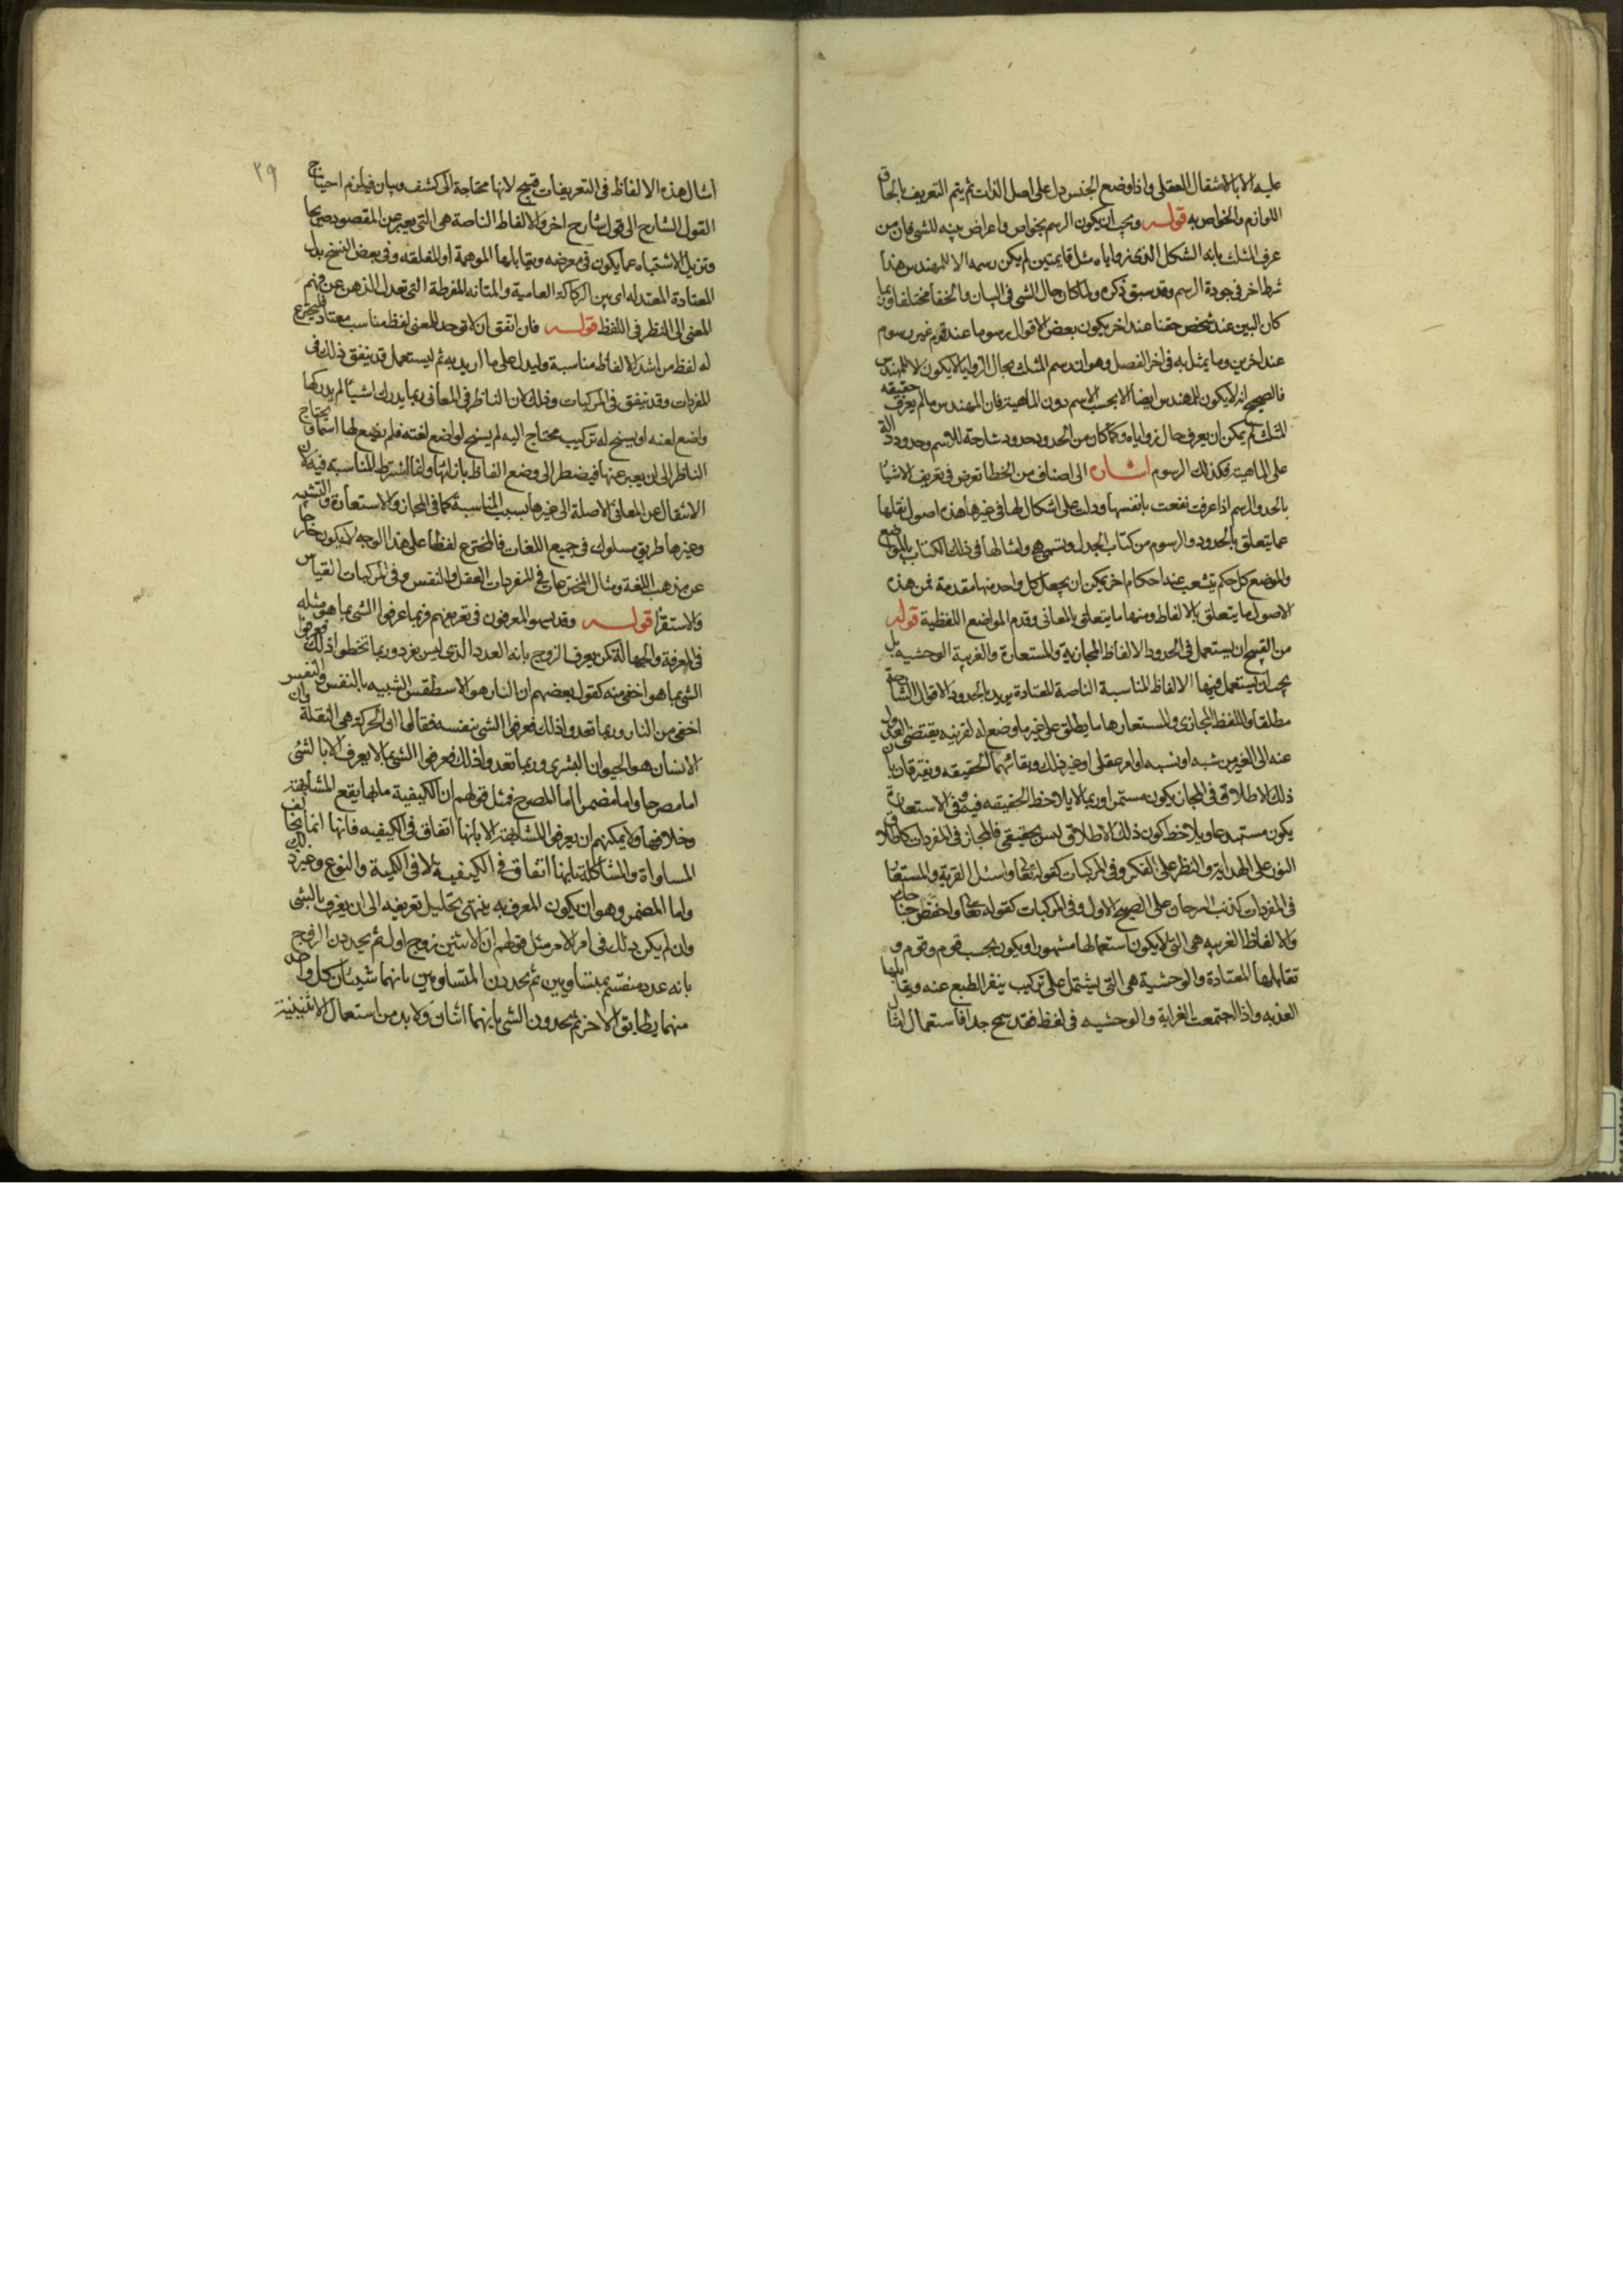 عليه الا بالانتقال العقلي واذا وضع الجنس دل على اصل الذات ثم يتم التعريف بالحاق
اللوازم والخواص به قوله ويجب ان يكون الرسم بخواص واعراض بينه للشي فان من
عرف المثلث بانه الشكل الذي زواياه مثل قايمتين لم يكن رسمه الا للمهندس هذا
شرط اخر في جودة الرسم وقد سبق ذكره ولما كان حال الشي في البيان والخفا مختلفا وربما
كان البين عند شخص خفيا عند اخر يكون بعض الاقوال رسوما عند قوم غير رسوم
عند اخرين وما يمثل به في اخر الفصل وهو ان رسم المثلث بحال الزوايا لا يكون الا للمهندس
فالصحيح انه لا يكون للمهندس ايضا الا بحسب الاسم دون الماهية فان المهندس ما لم يعرف حقيقه
المثلث لم يمكن ان يعرف حال زواياه وكما كان من الحدود حدود شارحة للاسم وحدود دالة
على الماهية فكذلك الرسوم اشاره الى اصناف من الخطا تعرض في تعريف الاشيا
بالحد والرسم اذا عرفت نفعت بانفسها ودلت على اشكال لها في غيرها هذه اصول نقلها
عما يتعلق بالحدود والرسوم من كتاب الجدل وتسمى هي وامثالها في ذلك الكتاب بالمواضع
والموضع كل حكم يتشعب عنه احكام اخر يمكن ان يجعل كل واحد منها مقدمة فمن هذه
الاصول ما يتعلق بالالفاظ ومنها ما يتعلق بالمعاني وقدم المواضع اللفظية قوله
من القبيح ان يستعمل في الحدود الالفاظ المجازية والمستعارة والغريبة الوحشيه بل
يجب ان يستعمل فيها الالفاظ المناسبة الناصة المعتادة يريد بالحدود الاقوال الشارحة
مطلقا واللفظ المجازي والمستعار هما ما يطلق على غير ما وضع له لقرينه يقتضي العدول
عنه الى الغير من شبه او نسبه او امر عقلي او غير ذلك ويقابلهما الحقيقه ويفترقان بان
ذلك الاطلاق في المجاز يكون مستمرا وربما لا يلاحظ الحقيقه فيه وفي الاستعارة
يكون مستبدعا ويلاحظ كون ذلك الاطلاق ليس بحقيقي فالمجاز في المفردات كاطلاق
النور على الهداية والنظر على الفكر وفي المركبات كقوله تعالى واسئل القرية والمستعار
في المفردات كذنب السرحان على الصبح الاول وفي المركبات كقوله تعالى واخفض جناح
والالفاظ الغريبه هي التي لا يكون استعمالها مشهورا ويكون بحسب قوم وقوم و
تقابلها المعتادة والوحشية هي التي يشتمل على تركيب ينفر الطبع عنه ويقابلها
العذبه واذا اجتمعت الغرابة والوحشيه في لفظ فقد سمج جدا فاستعمال امثال
٣٩
امثال هذه الالفاظ في التعريفات قبيح لانها محتاجة الى كشف وبيان فيلزم احتياج
القول الشارح الى قول شارح اخر والالفاظ الناصة هي التي يعبر عن المقصود صريحا
وتزيل الاشتباه عما يكون في معرضه ويقابلها الموهمة او المغلقه وفي بعض النسخ بدل
المعتادة المعتدله اي بين الركاكة العامية والمتانه المفرطة التي تعدل الذهن عن فهم
المعنى الى النظر في اللفظ قوله فان اتفق ان لا توجد للمعنى لفظ مناسب معتاد فليخترع
له لفظ من اشد الالفاظ مناسبة وليدل على ما اريد به ثم ليستعمل قد يتفق ذلك في
المفردات وقد يتفق في المركبات وذلك لان الناظر في المعاني ربما يدرك اشيا لم يدركها
واضع لغته او يسنح له تركيب محتاج اليه لم يسنح لواضع لغته فلم يضع لها اسما ويحتاج
الناظر الى ان يعبر عنها فيضطر الى وضع الفاظ بازائها وانما اشترط المناسبة فيه لان
الانتقال عن المعاني الاصلة الى غيرها بسبب المناسبة كما في المجاز والاستعارة والتشبيه
وغيرها طريق مسلوك في جميع اللغات فالمخترع لفظا على هذا الوجه لا يكون خارجا
عن مذهب اللغة ومثال المخترعات في المفردات العقل والنفس وفي المركبات القياس
والاستقرا قوله وقد يسهو المعرفون في تعريفهم فربما عرفوا الشي بما هو مثله
في المعرفة والجهالة كمن يعرف الزوج بانه العدد الذي ليس بفرد وربما تخطوا ذلك فعرفوا
الشي بما هو اخفى منه كقول بعضهم ان النار هو الاسطقس الشبيه بالنفس والنفس
اخفى من النار وربما تعدوا ذلك فعرفوا الشي بنفسه فقالوا ان الحركة هي النقلة وان
الانسان هو الحيوان البشري وربما تعدوا ذلك فعرفوا الشي بما لا يعرف الا بالشي
اما مصرحا واما مضمرا اما المصرح فمثل قولهم ان الكيفية ما بها يقع المشابهة
وخلافها ولا يمكنهم ان يعرفوا المشابهة الا بانها اتفاق في الكيفيه فانها انما يخالف
المساواة والمشاكلة بانها اتفاق في الكيفية لا في الكمية والنوع وغير ذلك
واما المضمر وهو ان يكون المعرف به ينتهي تحليل تعريفه الى ان يعرف بالشي
وان لم يكن ذلك في اول الامر مثل قولهم ان الاثنين زوج اول ثم يحدون الزوج
بانه عدد منقسم بمتساويين ثم يحدون المتساويين بانهما شيئان كل واحد
منهما يطابق الاخر ثم يحدون الشيئين بانهما اثنان ولا بد من استعمال الاثنينية